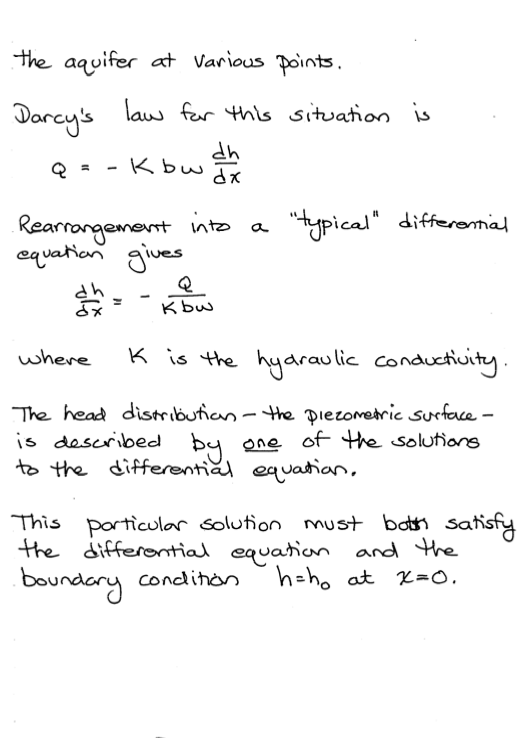 the aquifer at various points.
Darcy's law for this situation is
Q = - K b w dh/dx
Rearrangement into a "typical" differential
equation gives
dh/dx = - Q/Kbw
where K is the hydraulic conductivity.
The head distribution - the piezometric surface -
is described by one of the solutions
to the differential equation.
This particular solution must both satisfy
the differential equation and the
boundary condition h=h₀ at x=0.